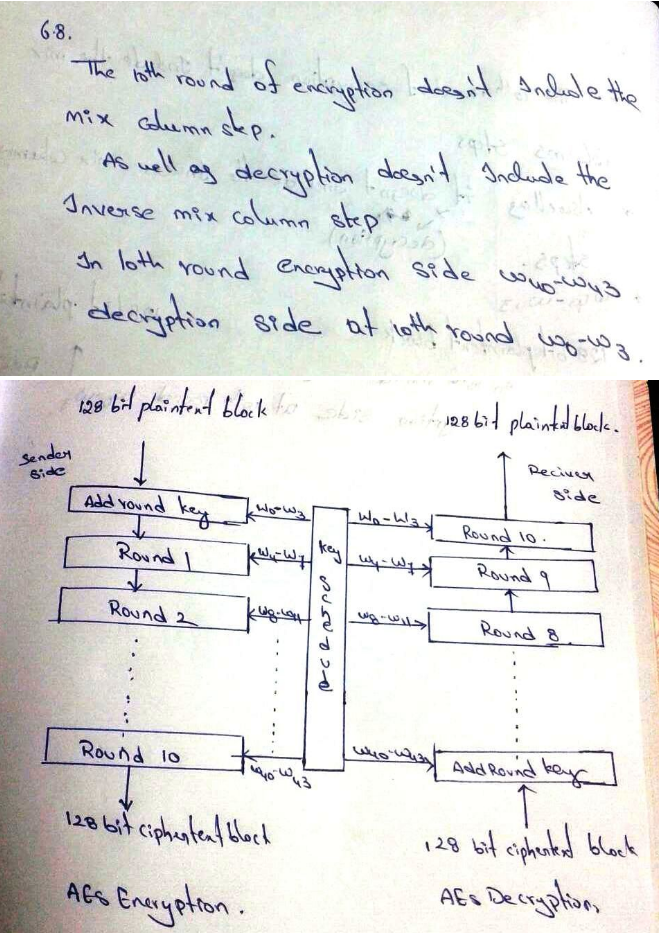 6.8.
The 10th round of encryption doesn't Include the
mix column step.
As well as decryption doesn't Include the
Inverse mix column step
In 10th round encryption side w40-w43
decryption side at 10th round w0-w3.
128 bit plaintext block
128 bit plaintext block.
Sender side
Reciver side
Add round key
w0-w3
key schedule
w0-w3
Round 10.
Round 1
w4-w7
w4-w7
Round 9
Round 2
w8-w11
w8-w11
Round 8
Round 10
w40-w43
w40-w43
Add Round key
128 bit ciphertext block
128 bit ciphertext block
AES Encryption.
AES Decryption.